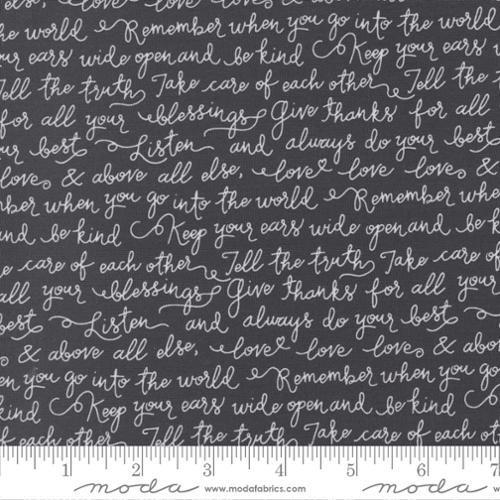 else, love love love & above all
he world Remember when you go into the world
ur ears wide open and be kind Keep your ears
Tell the truth Take care of each other Tell the
for all your blessings Give thanks for all
ur best Listen and always do your best
love & above all else, love love love &
ber when you go into the world Remember when
and be kind Keep your ears wide open and be k
e care of each other Tell the truth Take care o
all your blessings Give thanks for all your
best Listen and always do your best
& above all else, love love love & a
en you go into the world Remember when you g
kind Keep your ears wide open and be kind
of each other Tell the truth Take care of each ot
1 2 3 4 5 6 7
moda www.modafabrics.com moda www.modafabrics.com moda ww